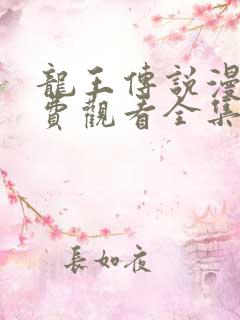 龍王傳說漫
費觀看全集
長如夜